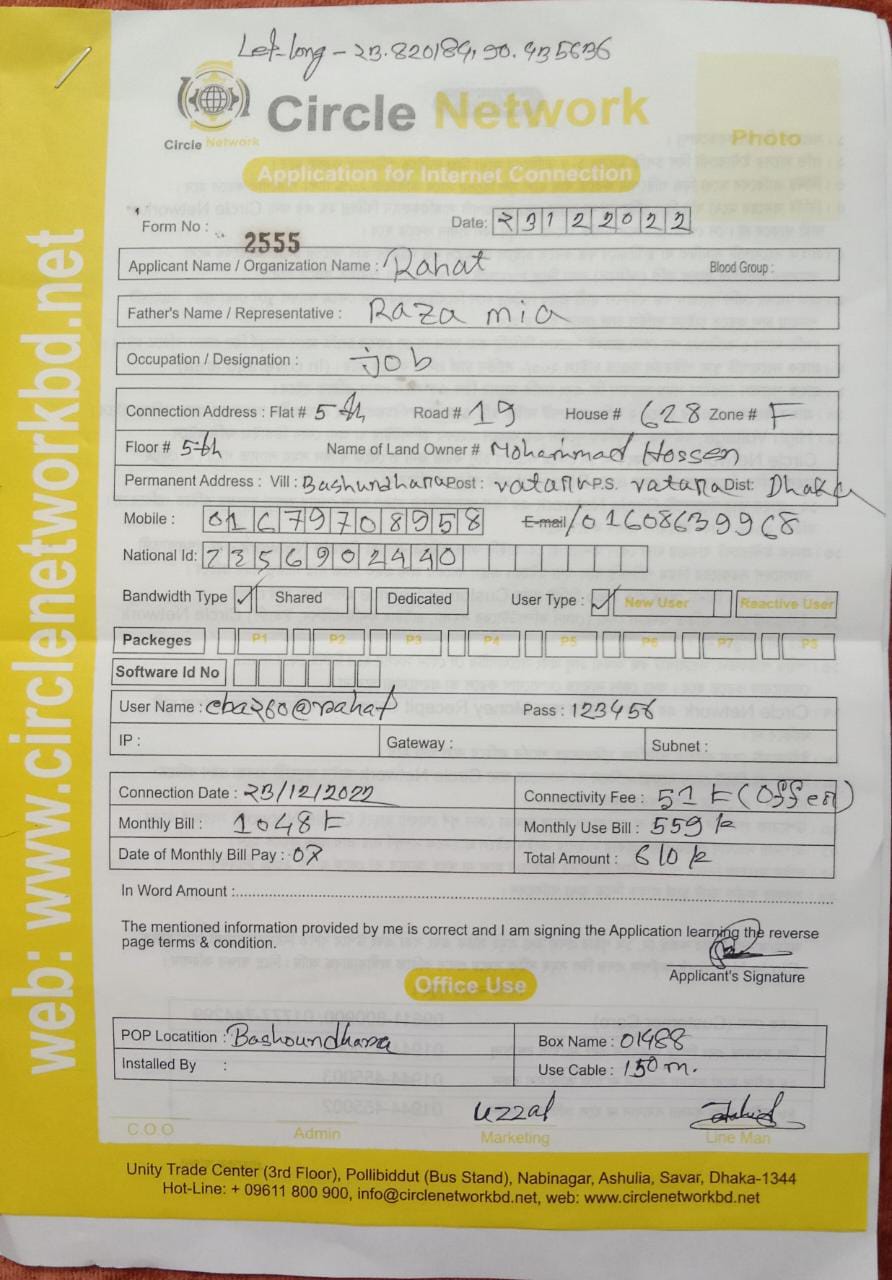 Let-long - 23.820184, 90.435636
Circle Network
Circle Network
Photo
Application for Internet Connection
Form No : 2555
Date: 23122022
Applicant Name / Organization Name : Rahat Blood Group :
Father's Name / Representative : Raza mia
Occupation / Designation : job
Connection Address : Flat # 5th Road # 19 House # 628 Zone # F
Floor # 5th Name of Land Owner # Mohammad Hossen
Permanent Address : Vill : Bashundhara Post : vatara P.S. vatara Dist: Dhaka
Mobile : 01679708958 E-mail / 01608639968
National Id: 7356902440
Bandwidth Type ✓ Shared Dedicated User Type : ✓ New User Reactive User
Packeges P1 P2 P3 P4 P5 P6 P7 P8
Software Id No
User Name : cba260@rahat Pass : 123456
IP : Gateway : Subnet :
Connection Date : 23/12/2022 Connectivity Fee : 51 t (Offer)
Monthly Bill : 1048 t Monthly Use Bill : 559 k
Date of Monthly Bill Pay : 07 Total Amount : 610 k
In Word Amount :
The mentioned information provided by me is correct and I am signing the Application learning the reverse
page terms & condition.
Applicant's Signature
Office Use
POP Locatition : Bashoundhara Box Name : 01488
Installed By : Use Cable : 150 m.
uzzal
C.O.O Admin Marketing Line Man
Unity Trade Center (3rd Floor), Pollibiddut (Bus Stand), Nabinagar, Ashulia, Savar, Dhaka-1344
Hot-Line: + 09611 800 900, info@circlenetworkbd.net, web: www.circlenetworkbd.net
web: www.circlenetworkbd.net